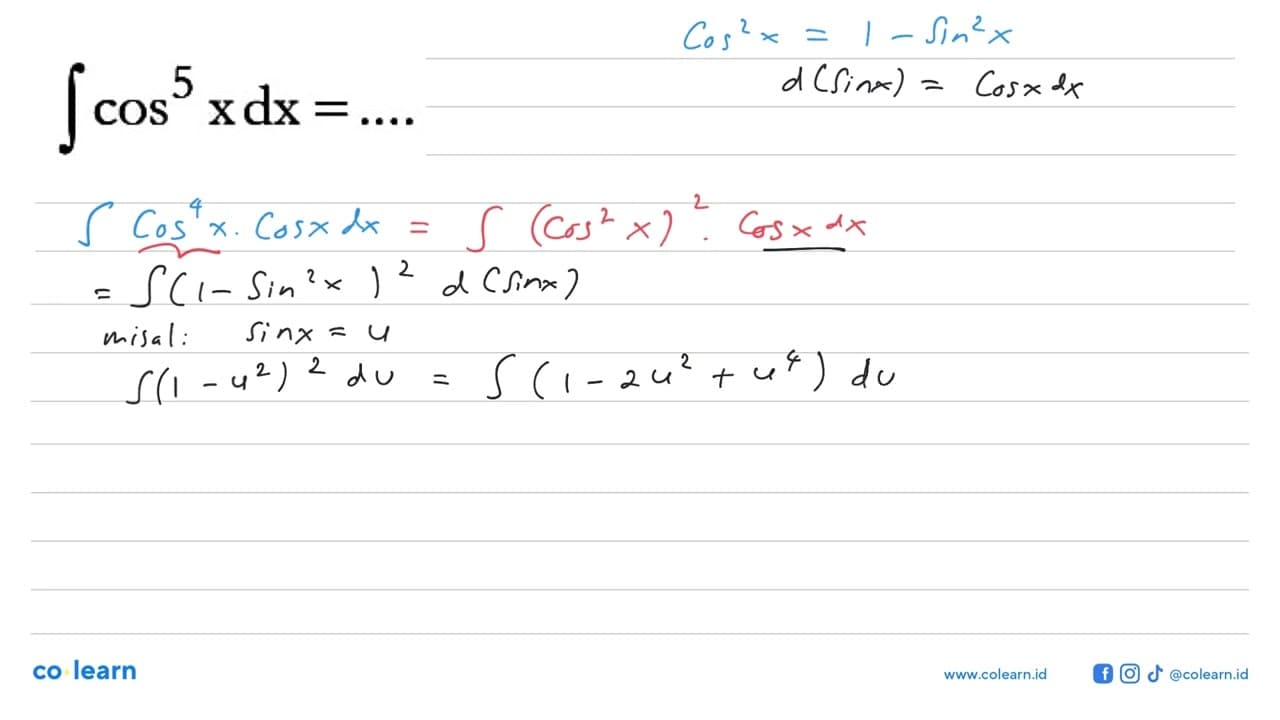 Cos² x = 1 - Sin² x
d (Sin x) = Cos x dx
∫ cos⁵ x dx = ....
∫ Cos⁴ x . Cos x dx = ∫ (Cos² x)² . Cos x dx
= ∫ (1 - Sin² x)² d (Sin x)
misal: Sin x = u
∫ (1 - u²)² du = ∫ (1 - 2u² + u⁴) du
co learn
www.colearn.id @colearn.id